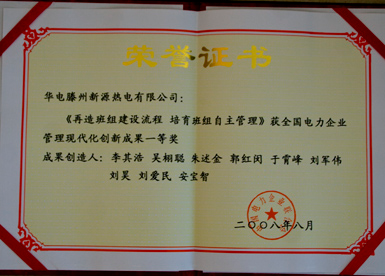 荣誉证书
华电滕州新源热电有限公司：
《再造班组建设流程 培育班组自主管理》获全国电力企业
管理现代化创新成果一等奖
成果创造人：李其浩 吴相聪 朱述金 郭红闵 于霄峰 刘军伟
刘昊 刘爱民 安宝智
二〇〇八年八月